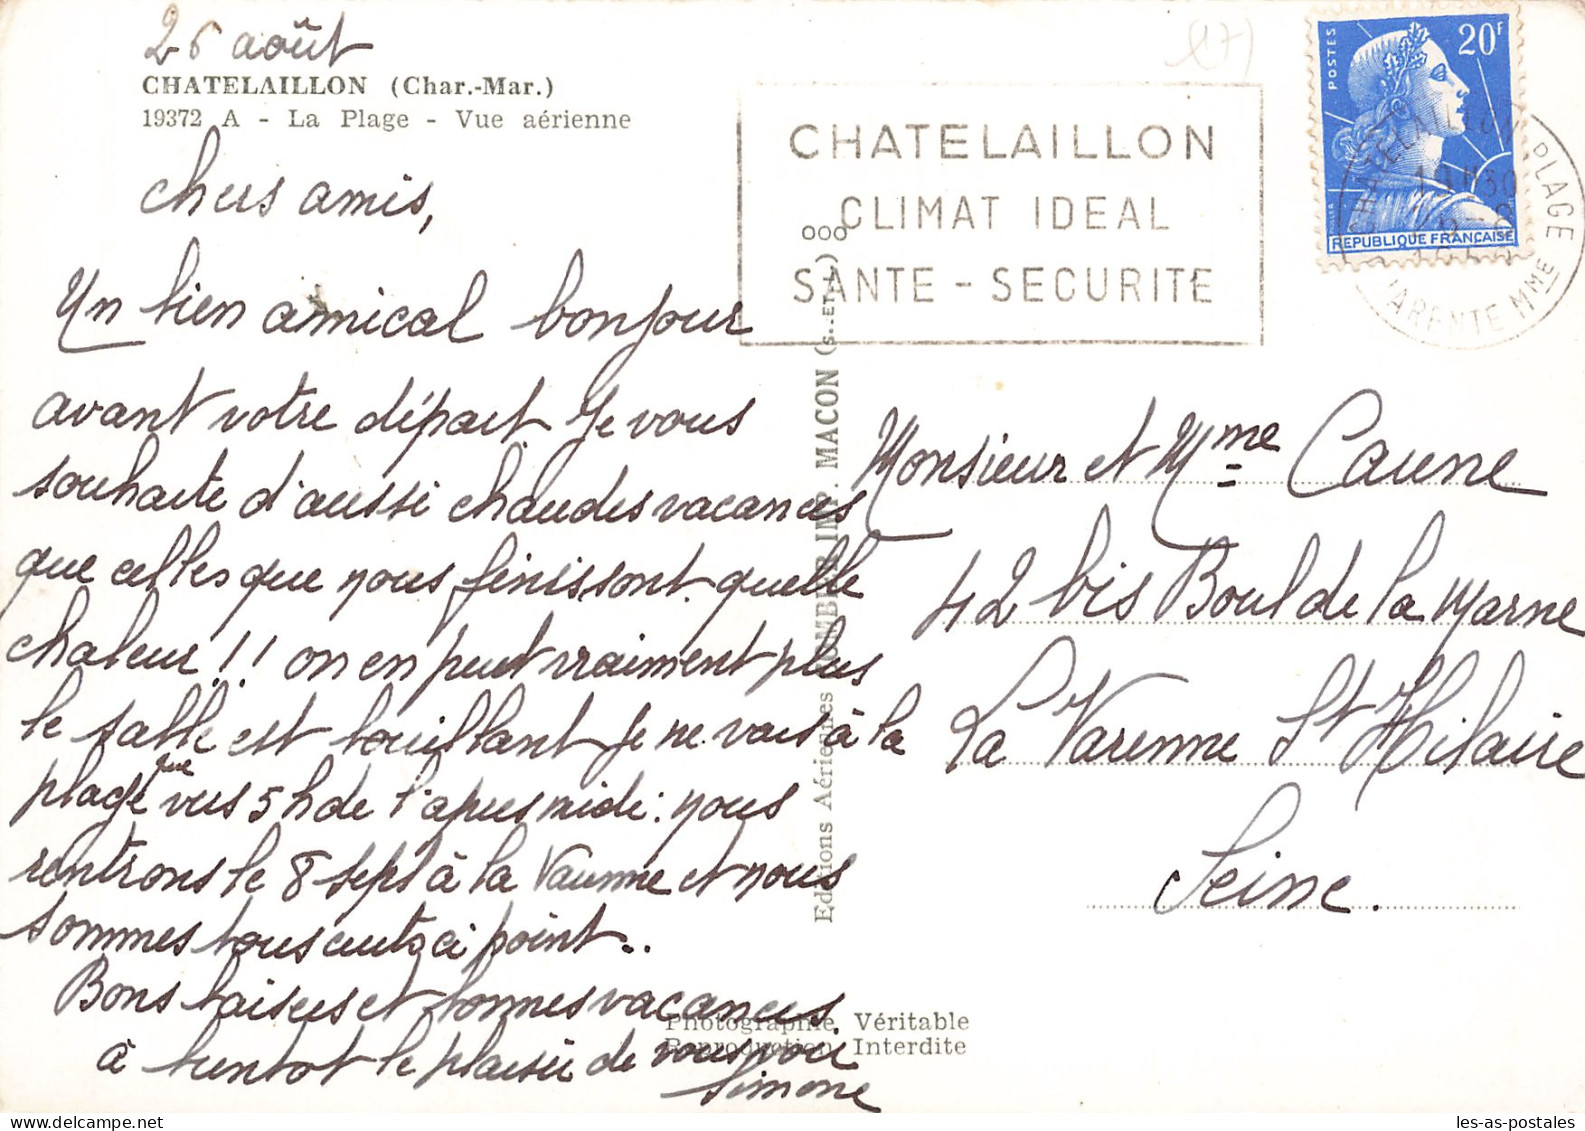 26 août
CHATELAILLON (Char.-Mar.)
19372 A - La Plage - Vue aérienne
Chers amis,
Un bien amical bonjour
avant votre départ Je vous
souhaite d'aussi chaudes vacances
que celles que nous finissons. quelle
chaleur!! on en peut vraiment plus
le sable est bouillant Je ne vais à la
plage que vers 5h de l'après midi: nous
rentrons le 8 sept à la Varenne et nous
sommes tous cuits à point..
Bons baisers et bonnes vacances.
à bientot le plaisir de vous voir
Simone
(17)
CHATELAILLON
CLIMAT IDEAL
SANTE - SECURITE
POSTES
20F
REPUBLIQUE FRANÇAISE
CHATELAILLON PLAGE
CHARENTE MME
Editions Aériennes COMBIER IMP. MACON (S.-ET-L.)
Monsieur et Mme Caune
42 bis Boul de la Marne
La Varenne St Hilaire
Seine.
Photographie Véritable
Reproduction Interdite
les-as-postales